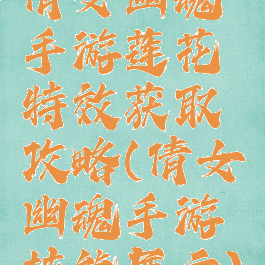 倩女幽魂
手游莲花
特效获取
攻略(倩女
幽魂手游